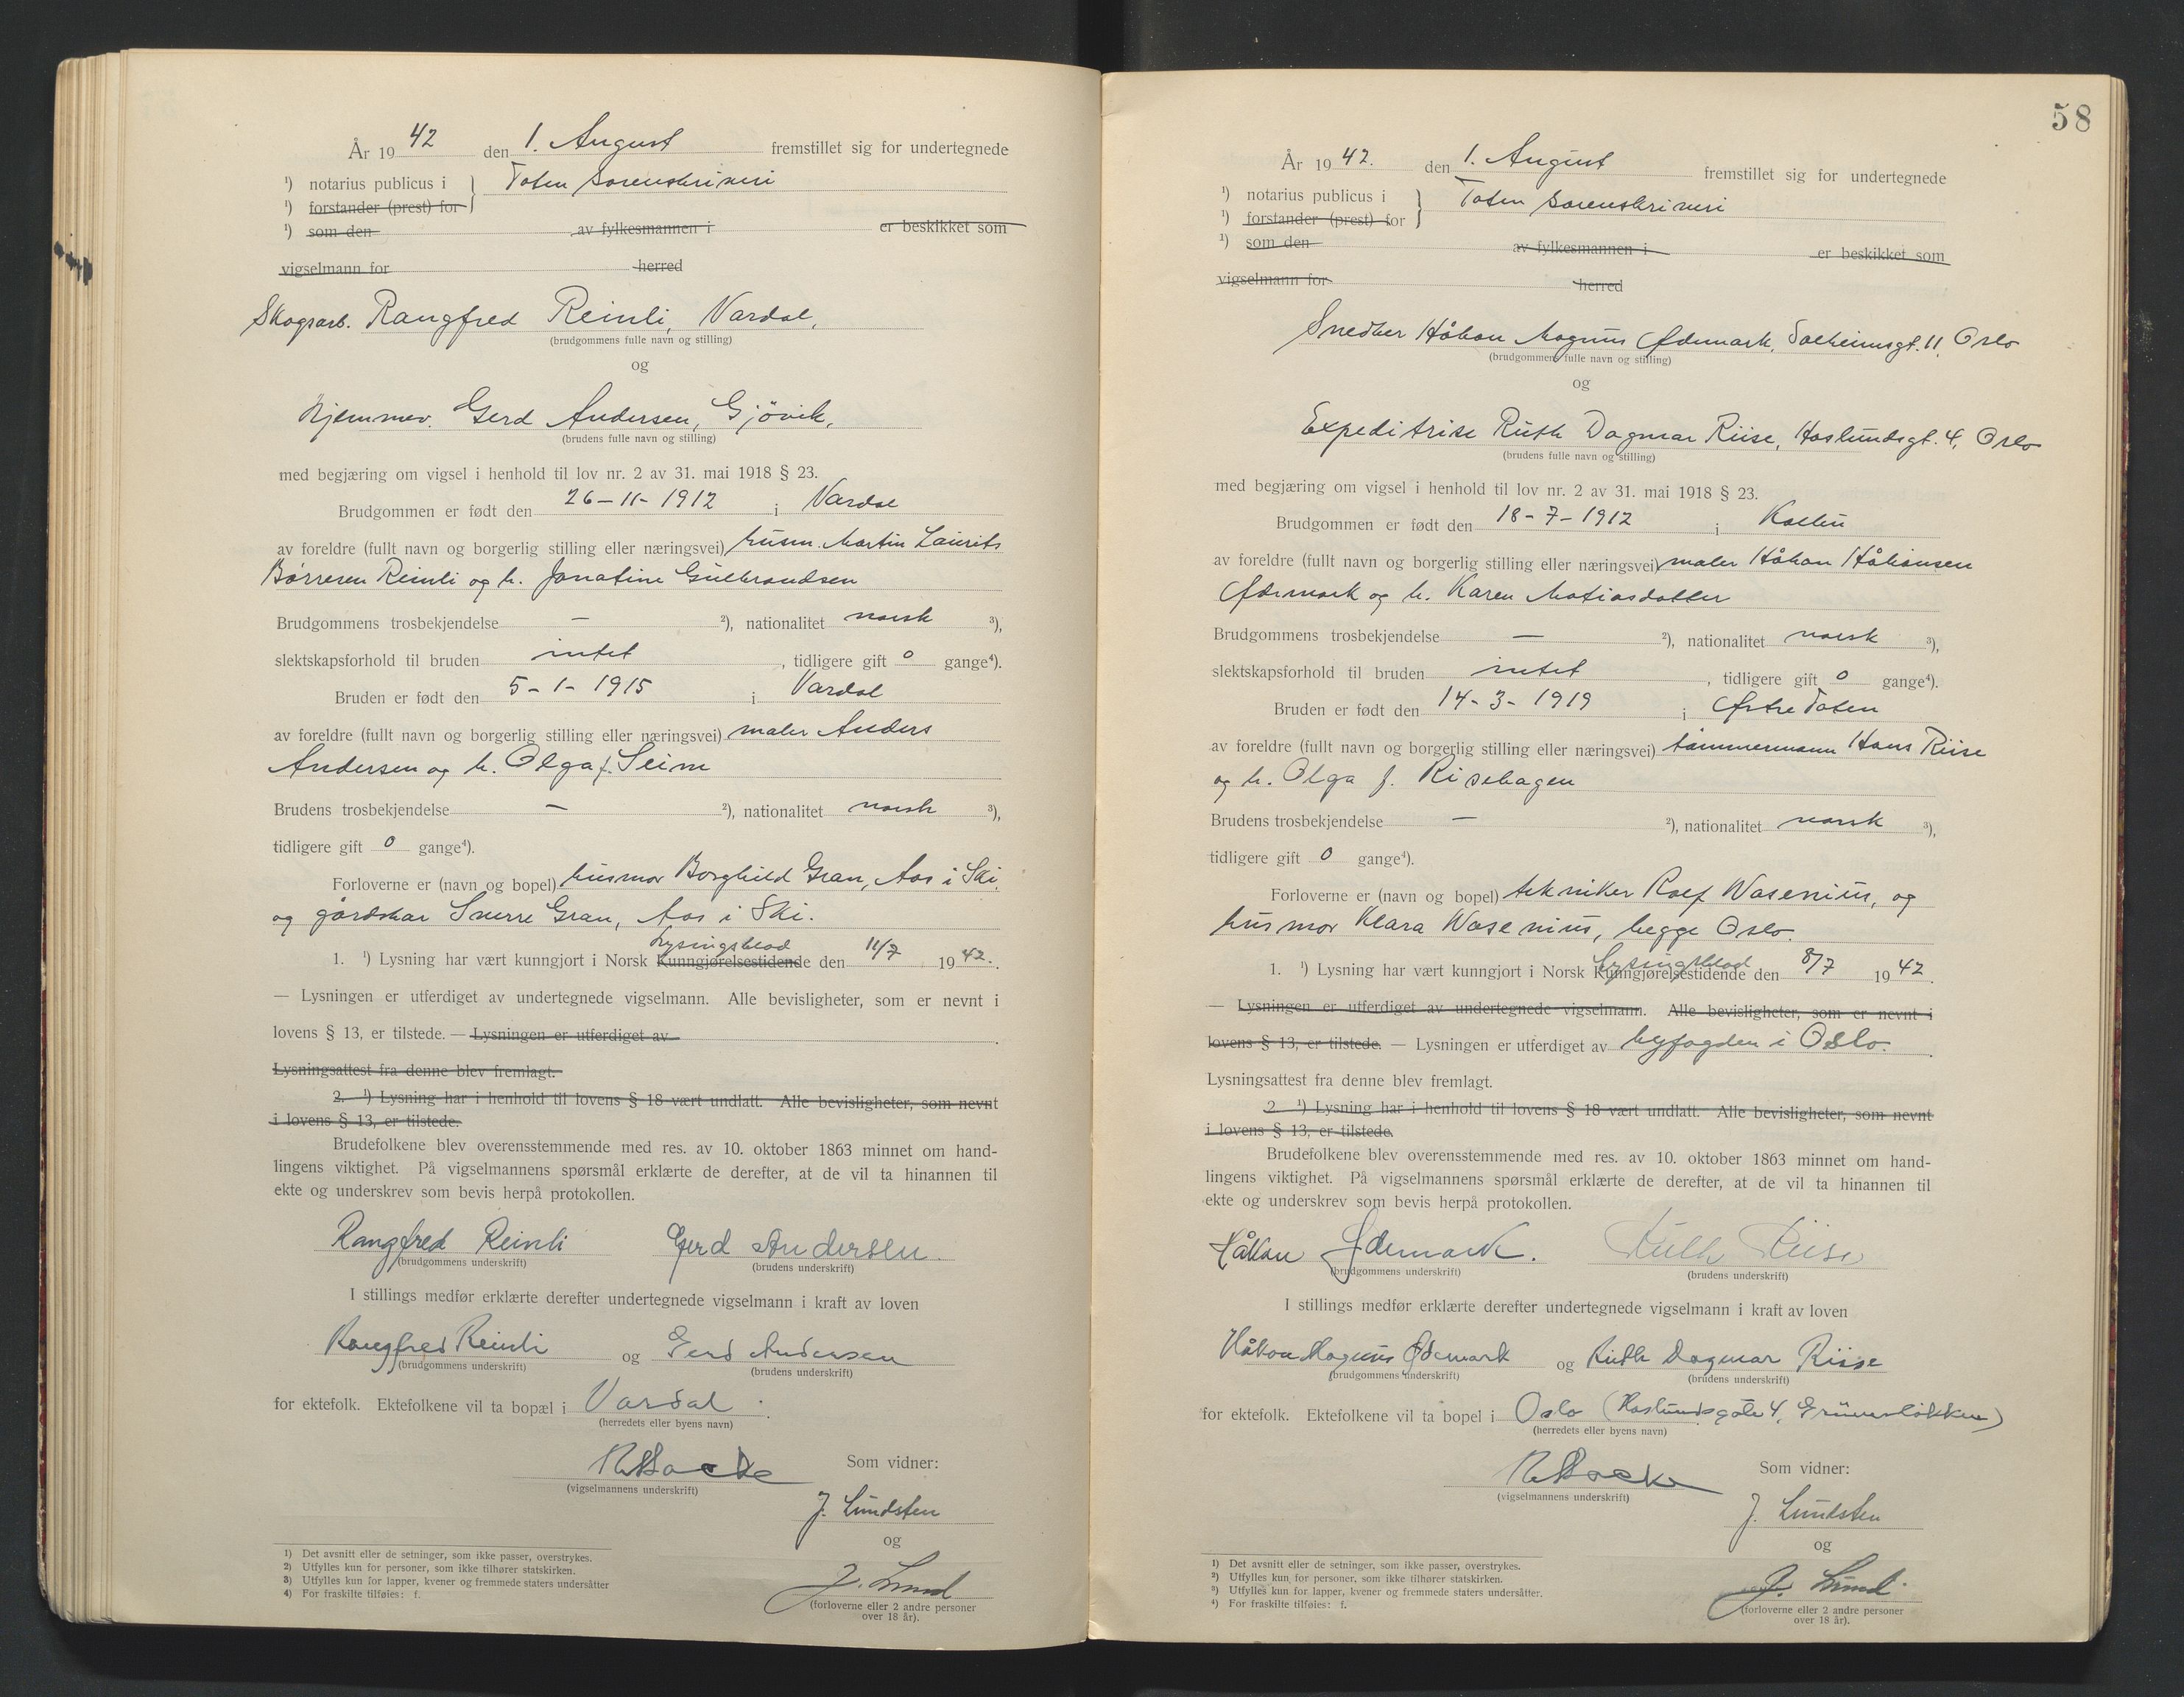 År 1942 den 1. August fremstillet sig for undertegnede
¹) notarius publicus i } Toten Sorenskriveri
¹) forstander (prest) for
¹) som den av fylkesmannen i er beskikket som
vigselmann for herred
Skogsarb. Rangfred Reinli, Vardal,
(brudgommens fulle navn og stilling)
og
Hjemmev. Gerd Andersen, Gjövik,
(brudens fulle navn og stilling)
med begjæring om vigsel i henhold til lov nr. 2 av 31. mai 1918 § 23.
Brudgommen er født den 26-11-1912 i Vardal
av foreldre (fullt navn og borgerlig stilling eller næringsvei) husm. Martin Laurits
Børresen Reinli og h. Jonatine Gulbrandsen
Brudgommens trosbekjendelse — ²), nationalitet norsk ³),
slektskapsforhold til bruden intet, tidligere gift 0 gange⁴).
Bruden er født den 5-1-1915 i Vardal
av foreldre (fullt navn og borgerlig stilling eller næringsvei) maler Anders
Andersen og h. Olga f. Seim
Brudens trosbekjendelse — ²), nationalitet norsk ³),
tidligere gift 0 gange⁴).
Forloverne er (navn og bopel) husmor Borghild Gran, Aas i Ski,
og gårdskar Snerre Gran, Aas i Ski.
Lysingsblad
1. ¹) Lysning har vært kunngjort i Norsk Kunngjørelsestidende den 11/7 1942.
— Lysningen er utferdiget av undertegnede vigselmann. Alle bevisligheter, som er nevnt i
lovens § 13, er tilstede. — Lysningen er utferdiget av
Lysningsattest fra denne blev fremlagt.
2. ¹) Lysning har i henhold til lovens § 18 vært undlatt. Alle bevisligheter, som nevnt
i lovens § 13, er tilstede.
Brudefolkene blev overensstemmende med res. av 10. oktober 1863 minnet om hand-
lingens viktighet. På vigselmannens spørsmål erklærte de derefter, at de vil ta hinannen til
ekte og underskrev som bevis herpå protokollen.
Rangfred Reinli Gerd Andersen.
(brudgommens underskrift) (brudens underskrift)
I stillings medfør erklærte derefter undertegnede vigselmann i kraft av loven
Rangfred Reinli og Gerd Andersen
(brudgommens underskrift) (brudens underskrift)
for ektefolk. Ektefolkene vil ta bopæl i Vardal.
(herredets eller byens navn)
Som vidner:
(vigselmannens underskrift)
J. Lundsten
og
J. Lund
(forloverne eller 2 andre personer
over 18 år).
1) Det avsnitt eller de setninger, som ikke passer, overstrykes.
2) Utfylles kun for personer, som ikke tilhører statskirken.
3) Utfylles kun for lapper, kvener og fremmede staters undersåtter
4) For fraskilte tilføies: f.
58
År 1942. den 1. August fremstillet sig for undertegnede
¹) notarius publicus i } Toten Sorenskriveri
¹) forstander (prest) for
¹) som den av fylkesmannen i er beskikket som
vigselmann for herred
Snedker Håkon Magnus Ødemark, Solheimsgt. 11, Oslo
(brudgommens fulle navn og stilling)
og
Expeditrise Ruth Dagmar Riise, Haslundsgt. 4, Oslo
(brudens fulle navn og stilling)
med begjæring om vigsel i henhold til lov nr. 2 av 31. mai 1918 § 23.
Brudgommen er født den 18-7-1912 i Kolbu
av foreldre (fullt navn og borgerlig stilling eller næringsvei) maler Håkon Håkonsen
Ødemark og h. Karen Matiasdatter
Brudgommens trosbekjendelse — ²), nationalitet norsk ³),
slektskapsforhold til bruden intet, tidligere gift 0 gange⁴).
Bruden er født den 14-3-1919 i Østre Toten
av foreldre (fullt navn og borgerlig stilling eller næringsvei) tømmermann Hans Riise
og h. Olga f. Risehagen
Brudens trosbekjendelse — ²), nationalitet norsk ³),
tidligere gift 0 gange⁴).
Forloverne er (navn og bopel) tekniker Rolf Wasenius, og
husmor Klara Wasenius, begge Oslo.
Lysingsblad
1. ¹) Lysning har vært kunngjort i Norsk Kunngjørelsestidende den 8/7 1942.
— Lysningen er utferdiget av undertegnede vigselmann. Alle bevisligheter, som er nevnt i
lovens § 13, er tilstede. — Lysningen er utferdiget av byfogden i Oslo.
Lysningsattest fra denne blev fremlagt.
2 ¹) Lysning har i henhold til lovens § 18 vært undlatt. Alle bevisligheter, som nevnt
i lovens § 13, er tilstede.
Brudefolkene blev overensstemmende med res. av 10. oktober 1863 minnet om hand-
lingens viktighet. På vigselmannens spørsmål erklærte de derefter, at de vil ta hinannen til
ekte og underskrev som bevis herpå protokollen.
Håkon Ødemark. Ruth Riise
(brudgommens underskrift) (brudens underskrift)
I stillings medfør erklærte derefter undertegnede vigselmann i kraft av loven
Håkon Magnus Ødemark og Ruth Dagmar Riise
(brudgommens underskrift) (brudens underskrift)
for ektefolk. Ektefolkene vil ta bopel i Oslo (Haslundsgate 4, Grünerløkken)
(herredets eller byens navn)
Som vidner:
(vigselmannens underskrift)
J. Lundsten
og
J. Lund
(forloverne eller 2 andre personer
over 18 år).
1) Det avsnitt eller de setninger, som ikke passer, overstrykes.
2) Utfylles kun for personer, som ikke tilhører statskirken.
3) Utfylles kun for lapper, kvener og fremmede staters undersåtter.
4) For fraskilte tilføies: f.